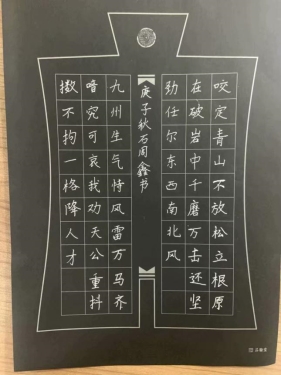 咬定青山不放松立根原
在破岩中千磨万击还坚
劲任尔东西南北风
庚子秋石周鑫书
九州生气恃风雷万马齐
喑究可哀我劝天公重抖
擞不拘一格降人才